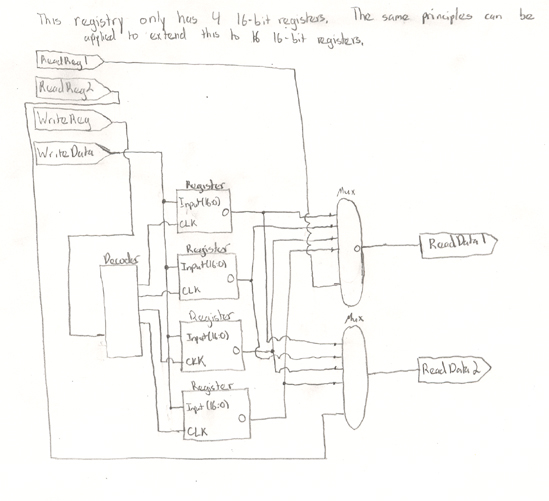 This registry only has 4 16-bit registers. The same principles can be
applied to extend this to 16 16-bit registers.
ReadReg1
ReadReg2
WriteReg
WriteData
Register
Input(16:0)
O
CLK
Mux
O
ReadData1
Decoder
Register
Input(16:0)
O
CLK
Register
Input(16:0)
O
CLK
Mux
ReadData2
Register
Input(16:0)
O
CLK